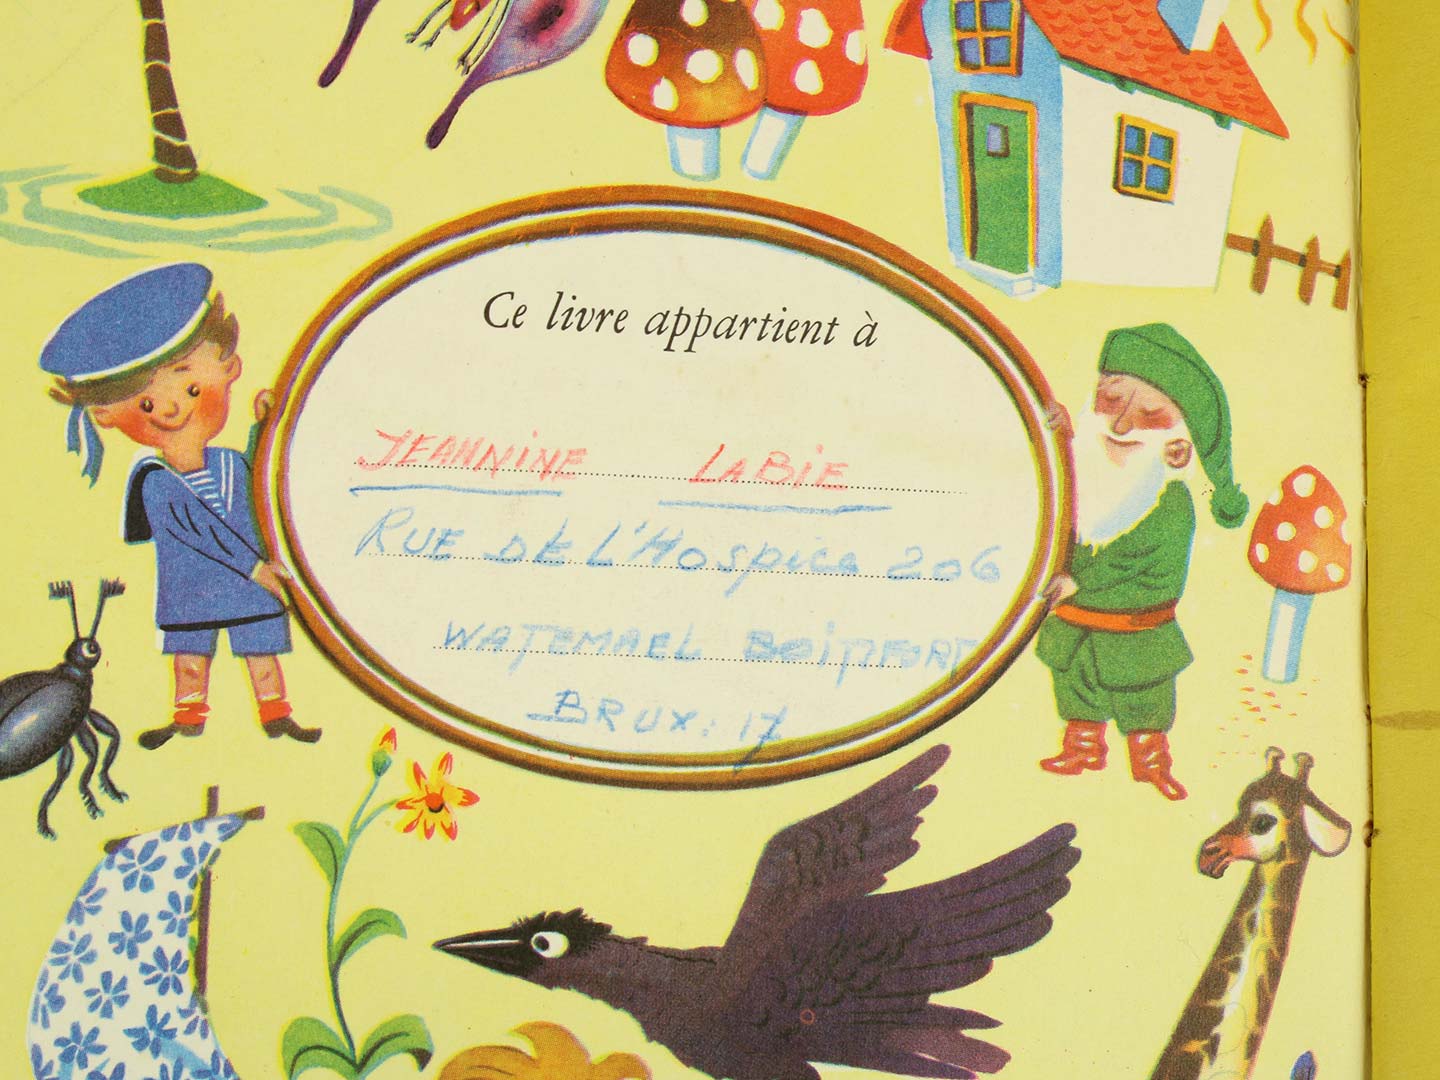 Ce livre appartient à
JEANNINE LABIE
RUE DE L'HOSPICE 206
WATEMAEL BOITFORT
BRUX: 17